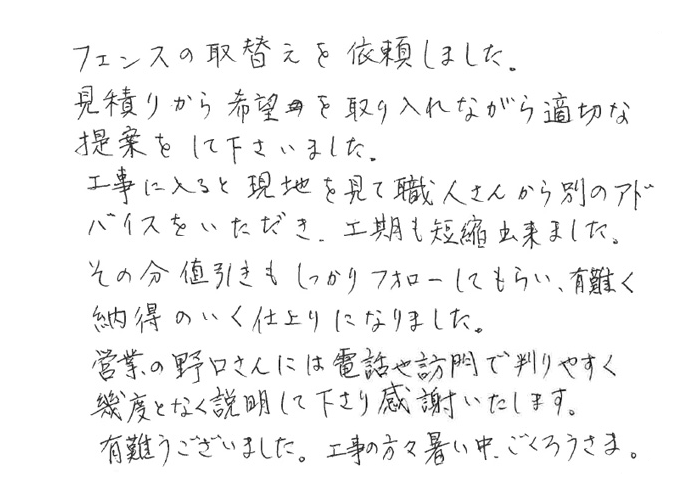 フェンスの取替えを依頼しました。
見積りから希望を取り入れながら適切な
提案をして下さいました。
工事に入ると現地を見て職人さんから別のアド
バイスをいただき、工期も短縮出来ました。
その分値引きもしっかりフォローしてもらい、有難く
納得のいく仕上りになりました。
営業の野口さんには電話や訪問で判りやすく
幾度となく説明して下さり感謝いたします。
有難うございました。工事の方々暑い中、ごくろうさま。